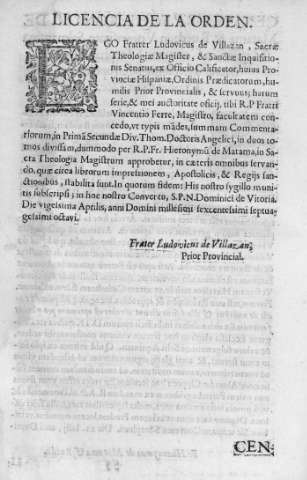 LICENCIA DE LA ORDEN.
EGO Frater Ludovicus de Villazan, Sacræ
Theologiæ Magister, & Sanctæ Inquisitio-
nis Senatus, ex Officio Calificator, huius Pro-
vinciæ Hispaniæ, Ordinis Prædicatorum, hu-
milis Prior Provincialis, & servus; harum
serie, & mei auctoritate officij, tibi R.P Fratri
Vincentio Ferre, Magistro, facultatem con-
cedo, vt typis mãdes, summam Commenta-
riorum, in Primã Secundæ Div. Thom. Doctoris Angelici, in duos to-
mos divissam, dummodo per R.P.Fr. Hieronymũ de Matama, in Sa-
cra Theologia Magistrum approbetur, in cæteris omnibus servan-
do, quæ circa librorum impressionem, Apostolicis, & Regijs san-
ctionibus, stabilita sunt. In quorum fidem: His nostro sygillo muniti
subscripsi; in hoc nostro Conventu, S.P.N.Dominici de Vitoria.
Die vigesima Aprilis, anni Domini millesimi sexcentesimi septua-
gesimi octavi.
Frater Ludovicus de Villazan,
Prior Provincial.
CEN-